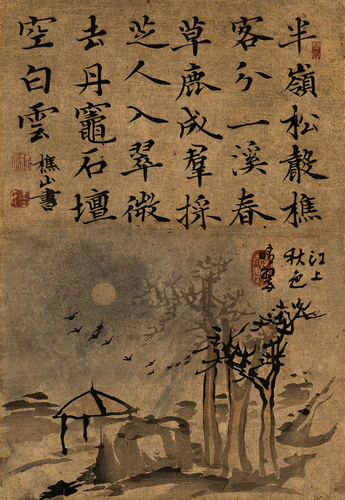 半嶺松聲樵
客分一溪春
草鹿成羣採
芝人入翠微
去丹竈石壇
空白雲
樵山書
江上
秋色